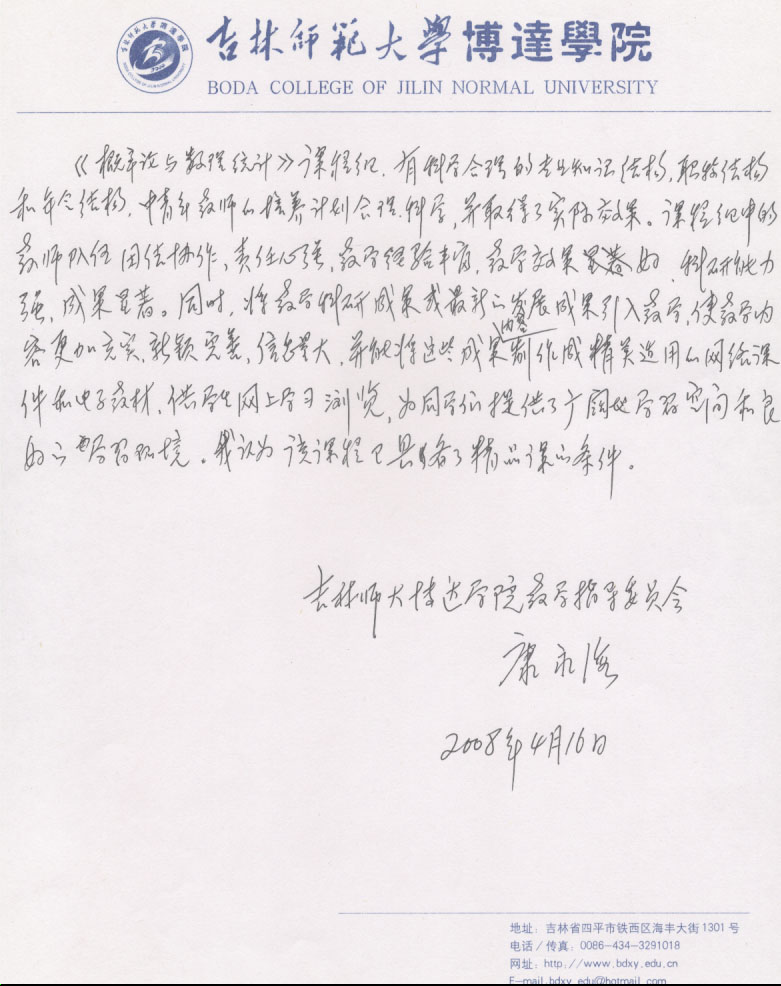 吉林师范大学博達學院
BODA COLLEGE OF JILIN NORMAL UNIVERSITY
《概率论与数理统计》课程组,有科学合理的专业知识结构,职称结构
和年令结构,中青年教师的培养计划合理科学,并取得了实际效果。课程组中的
教师队伍团结协作,责任心强,教学经验丰富,教学效果良好,科研能力
强,成果显著。同时,将教学科研成果或最新的发展成果引入教学,使教学内
容更加充实,新颖完善,信息量大,并能将这些成果内容制作成精美适用的网络课
件和电子教材,供学生网上学习浏览,为同学们提供了广阔的学习空间和良
好的学习环境。我认为该课程已具备了精品课的条件。
吉林师大博达学院教学指导委员会
康永海
2008年4月16日
地址:吉林省四平市铁西区海丰大街1301号
电话/传真:0086-434-3291018
网址:http://www.bdxy.edu.cn
E-mail.bdxy.edu@hotmail.com